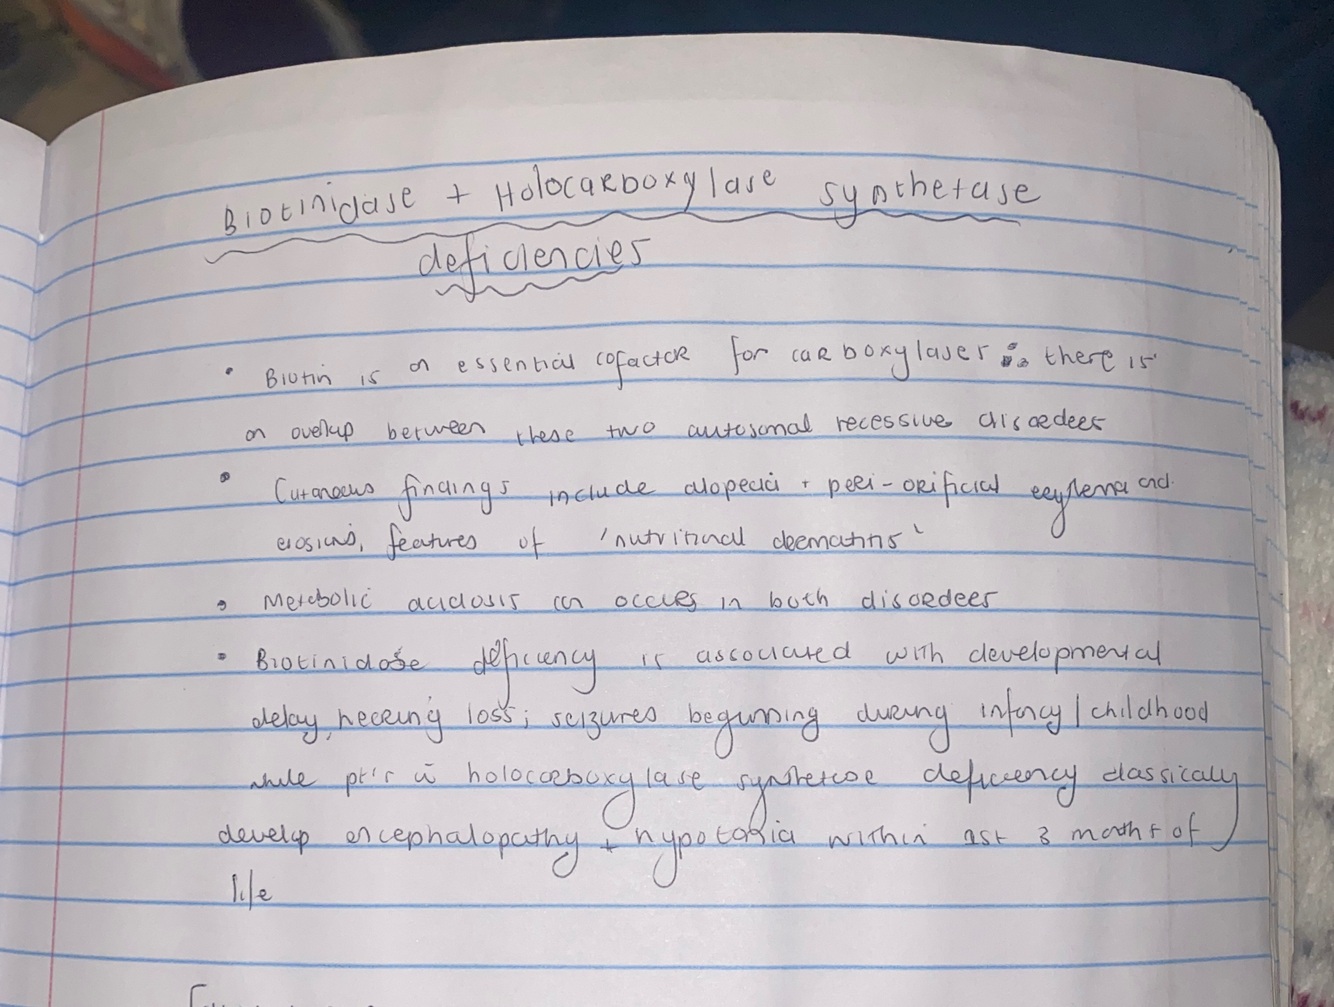 Biotinidase + Holocarboxylase synthetase
deficiencies
• Biotin is an essential cofactor for carboxylases ∴ there is
an overlap between these two autosomal recessive disorders
• Cutaneous findings include alopecia + peri-orificial erythema and
erosions, features of 'nutritional dermatitis'
• Metabolic acidosis can occurs in both disorders
• Biotinidase deficiency is associated with developmental
delay, hearing loss; seizures beginning during infancy/childhood
while pt's w holocarboxylase synthetase deficiency classically
develop encephalopathy + hypotonia within 1st 3 months of
life